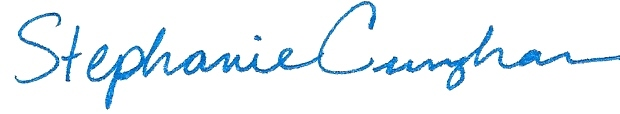 Stephanie Cunghan